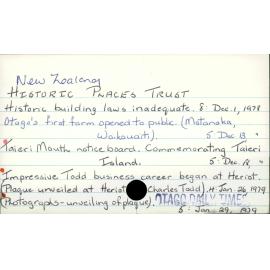 New Zealand
HISTORIC PLACES TRUST
Historic building laws inadequate. S: Dec. 1, 1978
Otago's first farm opened to public. (Matanaka,
Waikouaiti). S Dec 13 "
Taieri Mouth notice board. Commemorating Taieri
Island. S. Dec. 19, "
Impressive Todd business career began at Heriot.
(Plaque unveiled at Heriot Charles Todd). H. Jan 26, 1979
(Photographs - unveiling of plaque). OTAGO DAILY TIMES
S: Jan. 29, 1979